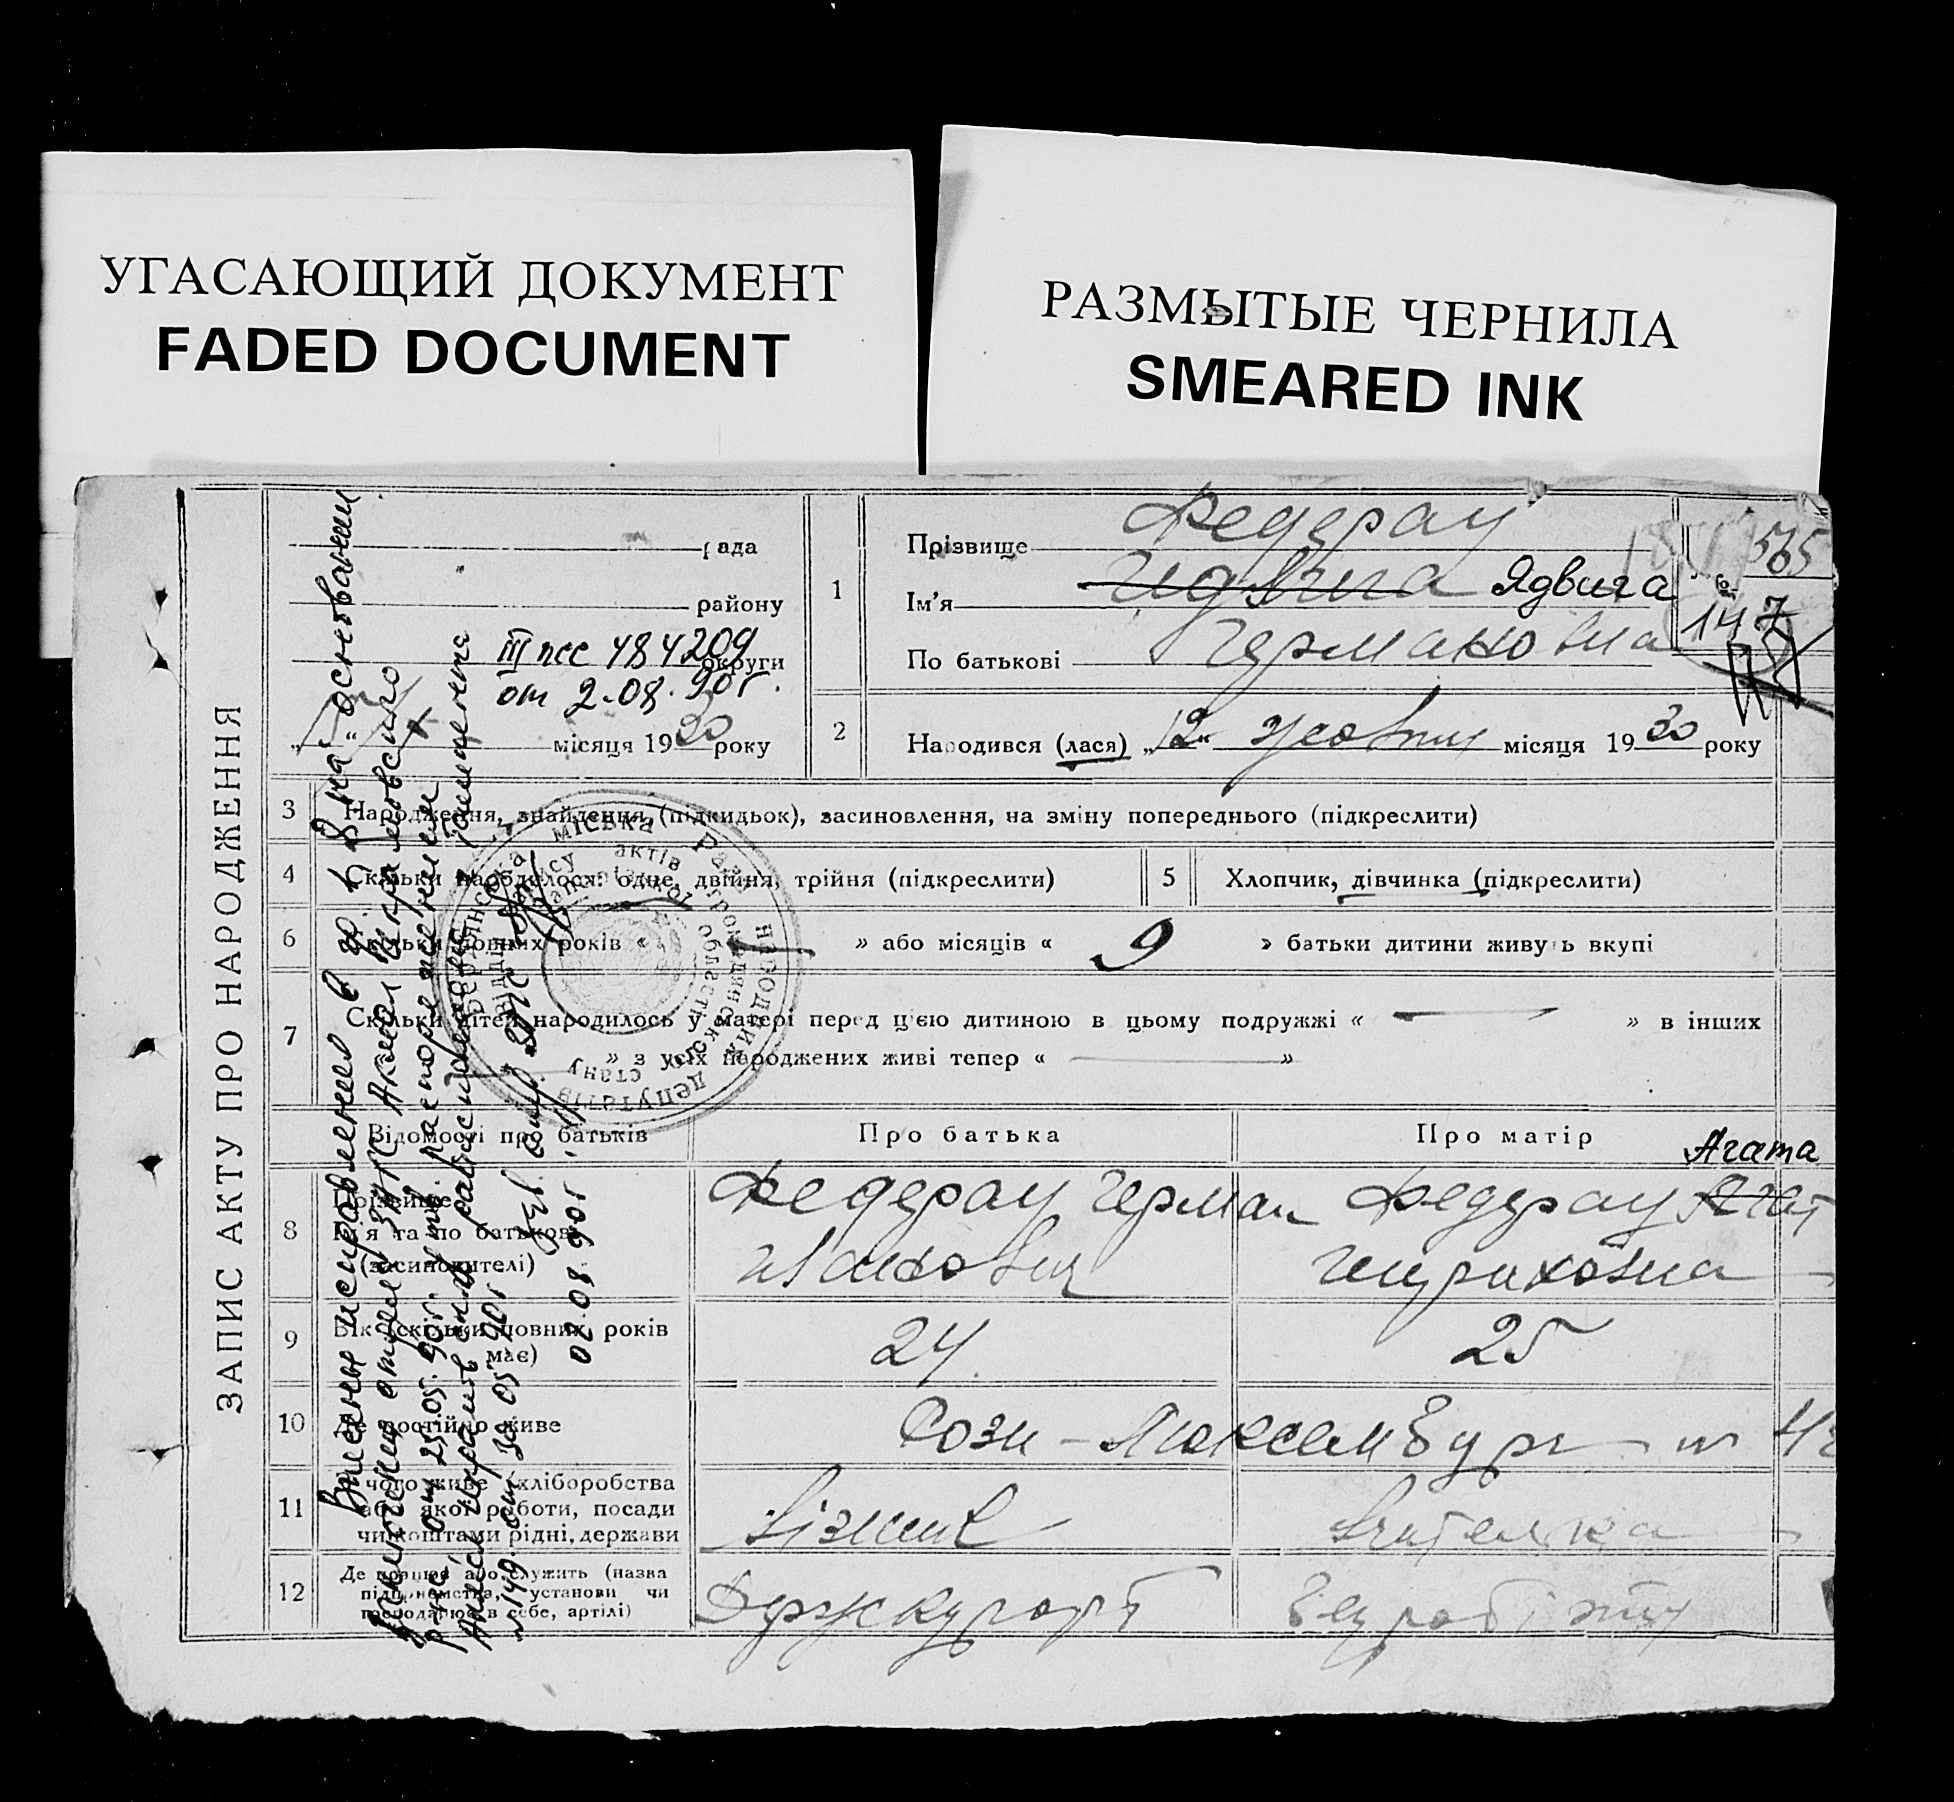 УГАСАЮЩИЙ ДОКУМЕНТ
FADED DOCUMENT
РАЗМЫТЫЕ ЧЕРНИЛА
SMEARED INK
ЗАПИС АКТУ ПРО НАРОДЖЕННЯ
рада
району
III псс 484209
округи
от 2.08.90г.
місяця 1930 року
1
Прізвище Федерау
Ім'я Ядвига
По батькові Германовна
565
147
2
Народився (лася) „12“ жовтня місяця 1930 року
3
Народження, знайдення (підкидьок), засиновлення, на зміну попереднього (підкреслити)
4
Скільки народилося: одне, двійня, трійня (підкреслити)
5
Хлопчик, дівчинка (підкреслити)
6
Скільки повних років « — » або місяців « 9 » батьки дитини живуть вкупі
7
Скільки дітей народилось у матері перед цією дитиною в цьому подружжі « — » в інших
» з усіх народжених живі тепер « — »
Відомості про батьків
Про батька
Про матір
Агата
8
Прізвище
Ім'я та по батькові
(засиновителі)
Федерау Герман
Иванович
Федерау Агат
Генриховна
9
Вік (скільки повних років
має)
24
25
10
Де постійно живе
Рози-Люксембург
11
з чого живе (хліборобства
або якої роботи, посади
чи коштами рідні, держави
візник
Вчителька
12
Де працює або служить (назва
підприємства, установи чи
господарює в себе, артілі)
Держкурорт
Безробітну
Внесены исправления в гр. 1, 8 на основании
заключения отдела ЗАГС
от 25.05.90г.
распоряжением
№149 от 30.05.90г.
Зав. отд. ЗАГС
02.08.90г.
міська Рада народних депутатів